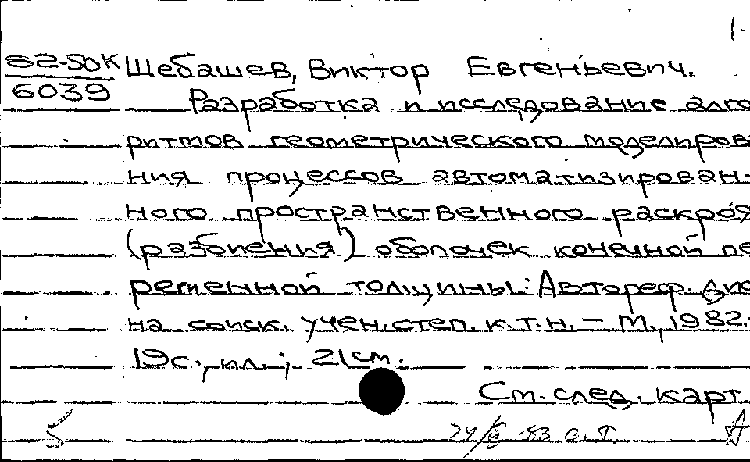 82-50К Шебашев, Виктор Евгеньевич.
6039 Разработка и исследование алго
ритмов геометрического моделирова
ния процессов автоматизирован-
ного пространственного раскроя
(разбиения) оболочек конечной пе
ременной толщины: Автореф. Дис
на соиск. учен. степ. к.т.н. – М., 1982.
19с., ил.; 21см.
См. след. карт.
5